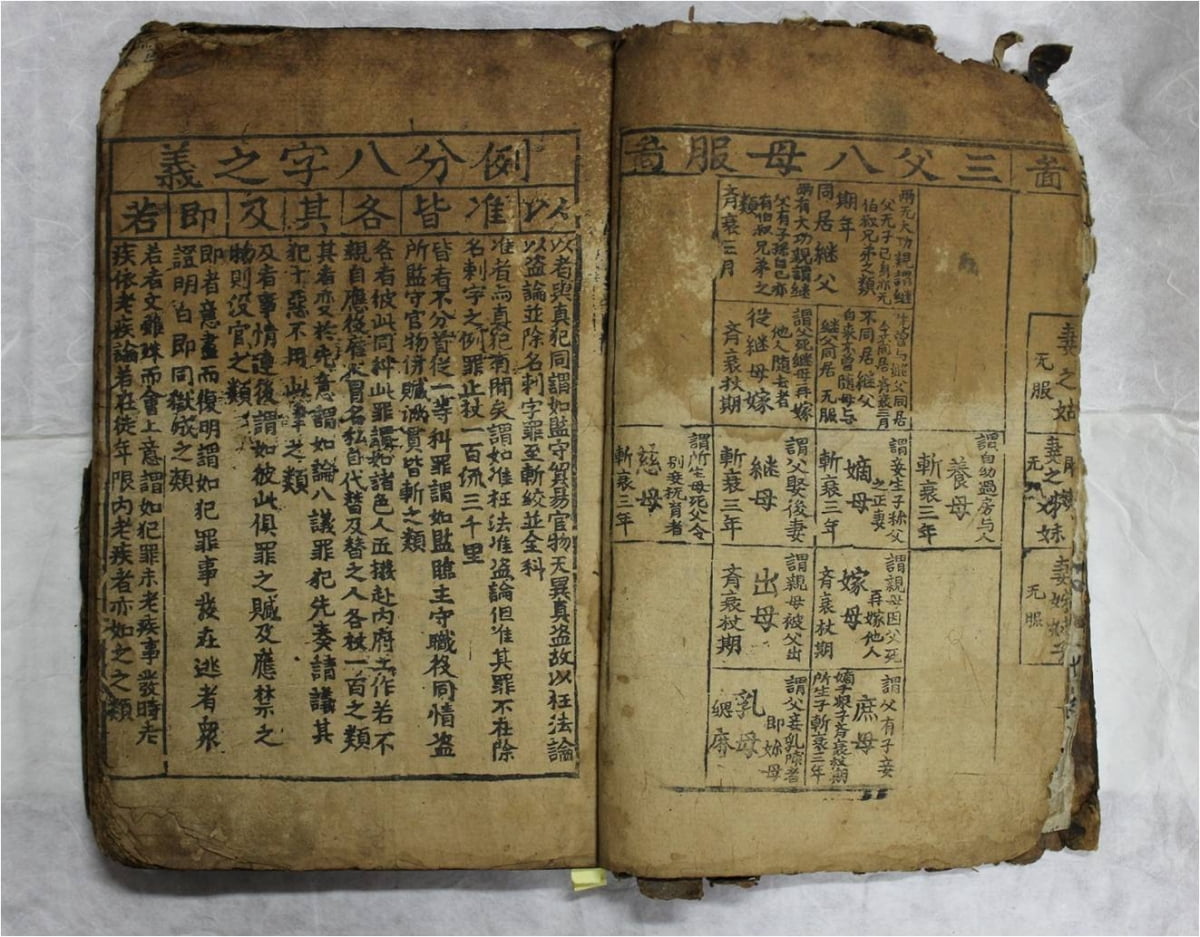 啚
妻之姑
无服
妻之姊妹
无服
无服
三父八母服啚
兩无大功親謂継
父无子已身亦无
伯叔兄弟之類
期年
同居継父
兩有大功親謂継
父有子孫自己亦
有伯叔兄弟之
類
齊衰三月
不同居継父
自來不曾随母与
継父同居 无服
謂父死継母再嫁
他人随去者
從継母嫁
齊衰杖期
謂自幼過房与人
養母
斬衰三年
謂妾生子称父
之正妻
嫡母
斬衰三年
謂父娶後妻
継母
斬衰三年
謂所生母死父令
別妾抚育者
慈母
斬衰三年
謂親母因父死
再嫁他人
嫁母
齊衰杖期
謂親母被父出
出母
齊衰杖期
謂父有子妾
庶母
嫡子衆子齊衰杖期
所生子斬衰三年
謂父妾乳哺者
即妳母
乳母
緦麻
例分八字之義
以 准 皆 各 其 及 即 若
以者與真犯同謂如監守貿易官物无異真盗故以枉法論
以盗論並除名刺字罪至斬絞並全科
准者与真犯有間矣謂如准枉法准盗論但准其罪不在除
名刺字之例罪止杖一百流三千里
皆者不分首從一等科罪謂如監臨主守職役同情盗
所監守官物併贓滿貫皆斬之類
各者彼此同科此罪謂如諸色人匠撥赴内府工作若不
親自應役雇人冒名私自代替及替之人各杖一百之類
其者变於先意謂如論八議罪犯先奏請議其
犯十惡不用此律之類
及者事情連後謂如彼此俱罪之贓及應禁之
物則没官之類
即者意盡而復明謂如犯罪事發在逃者衆
證明白即同獄成之類
若者文雖殊而會上意謂如犯罪未老疾事發時老
疾依老疾論若在徒年限内老疾者亦如之之類